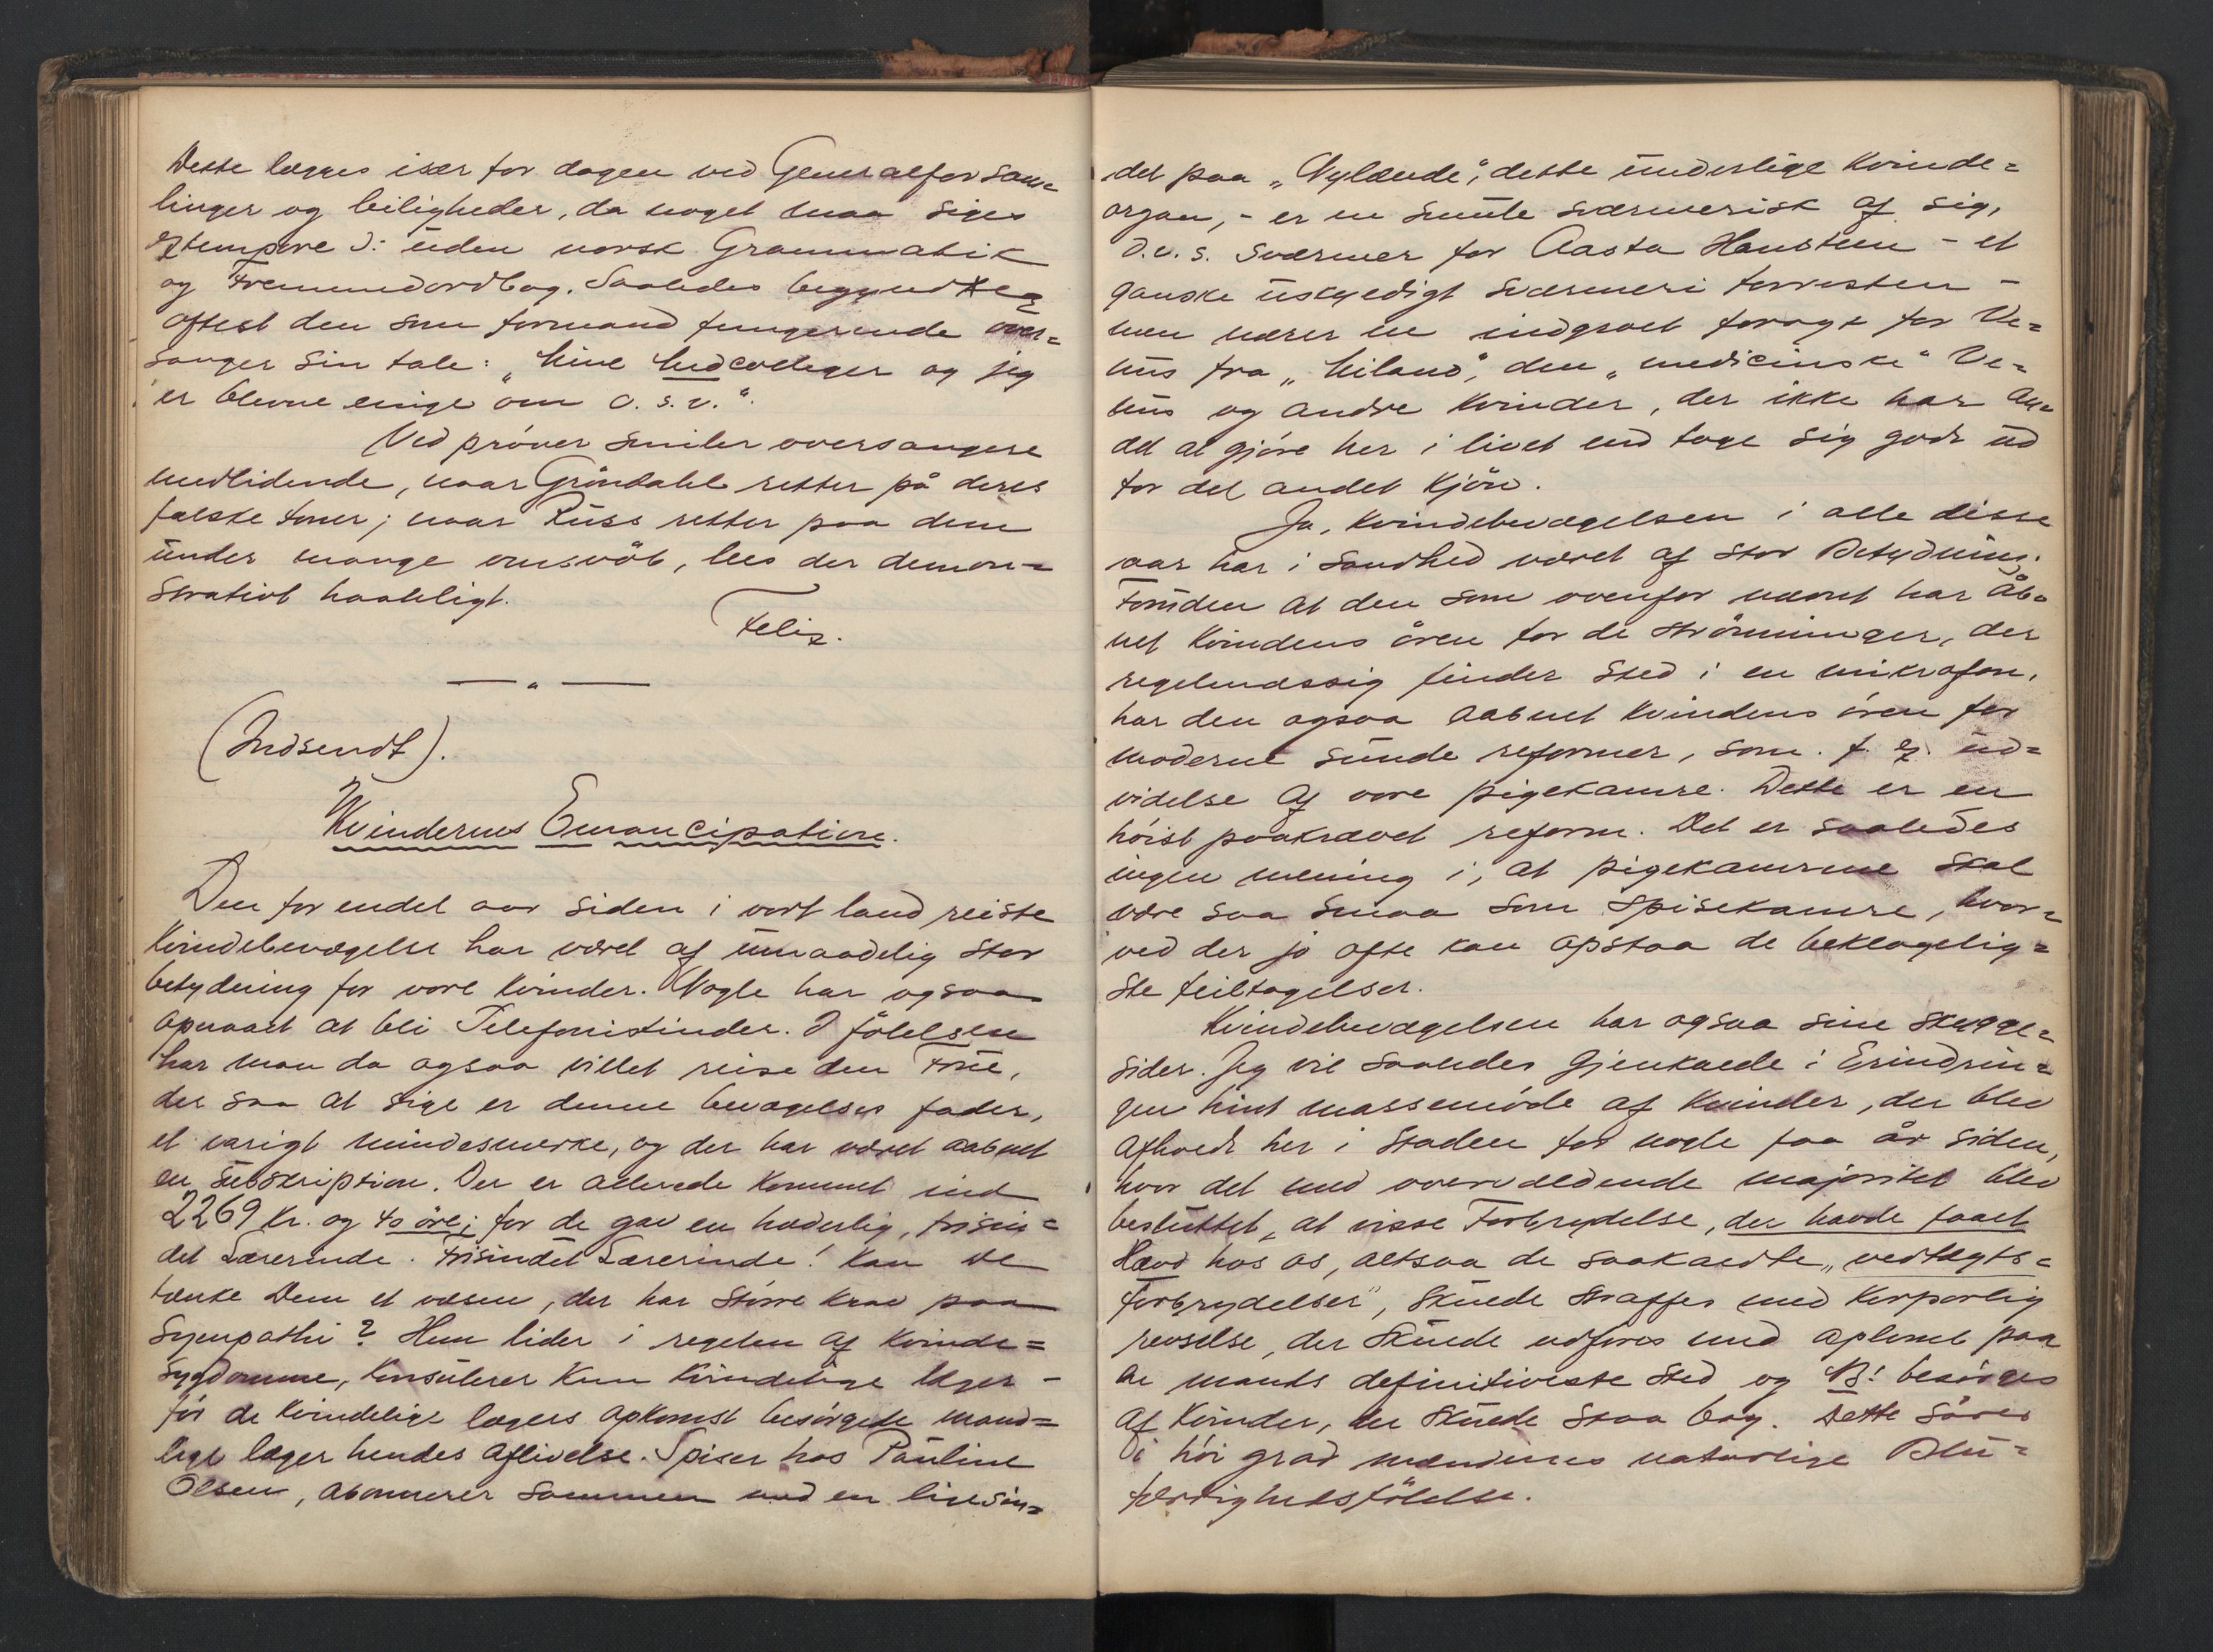 Dette lægges især for dagen ved Generalforsam=
linger og leiligheder, da noget maa siges
extempore ɔ: uden norsk Grammatik
og Fremmedordbog. Saaledes begyndte
oftest den som formand fungerende over=
sanger sin tale: „Mine Medcolleger og jeg
er blevne enige om o.s.v.".
Ved prøver smiler oversangere
medlidende, naar Gröndahl retter på deres
falske toner; naar Russ retter paa dem
under mange omsvöb, lees der demon=
strativt haanligt.
Felix.
(Indsendt).
Kvindernes Emancipation.
Den for endel aar siden i vort land reiste
Kvindebevægelse har været af umaadelig stor
betydning for vore Kvinder. Nogle har ogsaa
opnaaet at bli Telefonistinder. I fölelsen
har man da ogsaa villet reise den Frue,
der saa at sige er denne bevægelses fader,
et varigt mindesmerke, og der har været aabnet
en Subskription. Der er allerede kommet ind
2269 kr. og 40 öre; for de gav en hæderlig, frisin=
det Lærerinde. Frisindet Lærerinde! Kan De
tænke Dem et væsen, der har större krav paa
Sympathi? Hun lider i regelen af Kvinde=
sygdomme, konsulerer kun kvindelige læger -
för de kvindelige lægers opkomst besörgede mand=
lige læger hendes aflivelse. Spiser hos Pauline
Olsen, abonnerer sammen med en ligesin=
det paa „Nylænde", dette underlige Kvinde=
organ, - er en smule sværmerisk af sig,
d.v.s. sværmer for Aasta Hansteen - et
ganske uskyldigt sværmeri forresten -
men nærer en indgroet foragt for Ve=
nus fra „Milano", den „medicinske" Ve=
nus og andre Kvinder, der ikke har an=
det at gjöre her i livet end tage sig godt ud
for det andet Kjön.
Ja, Kvindebevægelsen i alle disse
aar har i Sandhed været af stor Betydning.
Foruden at den som ovenfor nævnt har åb=
net Kvindens ören for de strömninger, der
regelmæssig finder Sted i en mikrofon,
har den ogsaa aabnet Kvindens ören for
moderne sunde reformer, som f. ex. ud=
videlse af vore pigekamre. Dette er en
höist paakrævet reform. Det er saaledes
ingen mening i, at pigekamrene skal
være saa smaa som Spisekamre, hvor=
ved der jo ofte kan opstaa de beklagelig=
ste feiltagelser.
Kvindebevægelsen har ogsaa sine skygge=
sider. Jeg vil saaledes gjenkalde i Erindrin=
gen hint massemöde af Kvinder, der blev
afholdt her i Staden for nogle faa år siden,
hvor det med overvældende majoritet blev
besluttet, at visse Forbrydelse, der havde faaet
Hævd hos os, altsaa de saakaldte „vedtægts=
Forbrydelser", skulde straffes med korporlig
revselse, der skulde udføres med aplomb paa
de mands definitiveste Sted og NB! besörges
af Kvinder, der skulde staa bag. Dette sårer
i höi grad mændenes naturlige Blu=
færdighedsfölelse.